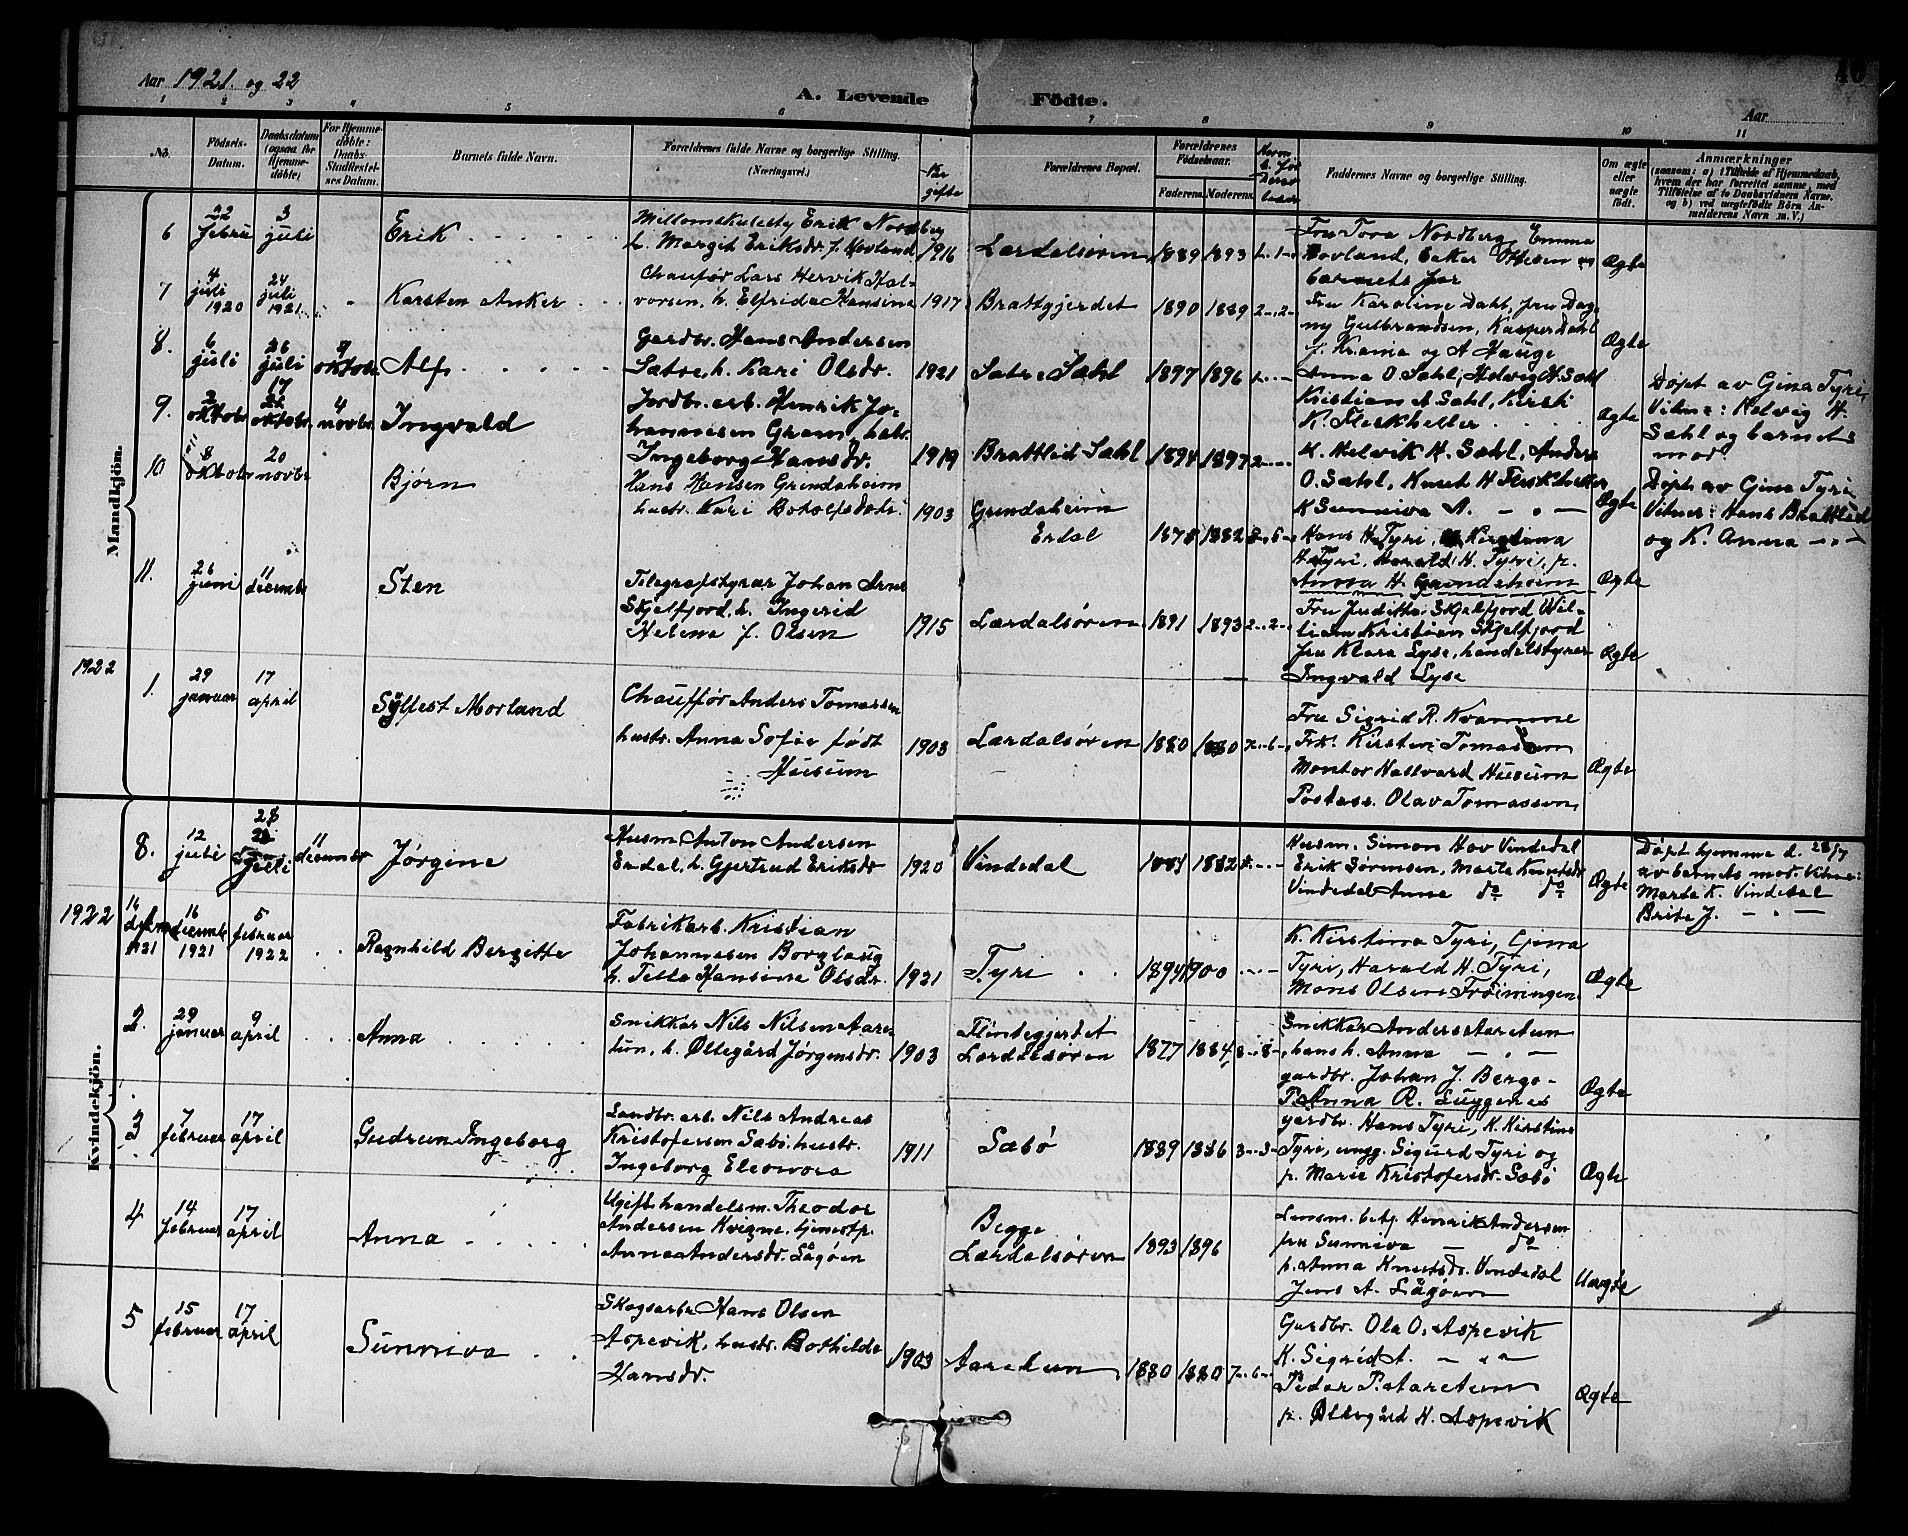 Aar 1921. og 22
A. Levende Födte.
40
Aar
1 2 3 4 5 6 7 8 9 10 11
No.
Födsels-Datum.
Daabsdatum (ogsaa for Hjemme-döbte)
For Hjemme-döbte: Daabs Stadfæstel-ses Datum.
Barnets fulde Navn.
Forældrenes fulde Navne og borgerlige Stilling. (Næringsvei.)
gifte
Forældrenes Bopæl.
Forældrenes Födselsaar.
Faderens. Moderens.
Faddernes Navne og borgerlige Stilling.
Om ægte eller uægte födt.
Anmærkninger
(saasom: a) i Tilfælde af Hjemmedaab, hvem der har forrettet samme, med Tilföielse af to Daabsvidners Navne. og b) ved uægtefödte Börn An-melderens Navn m. V.)
Mandkjön.
6 22 febru 3 juli Erik
Millomskulesty Erik Nordberg
h. Margit Eriksdr. f. Hovland 1916
Lærdalsøren 1889 1893
Fru Tora Nordberg, Emma
Hovland, baker Ottesen og
barnets far
Ægte
7 4 juli 1920 24 juli 1921 Karsten Anker
Chaufør Lars Hervik Hal-
vorsen, h. Elfrida Hansine 1917
Brattgjerdet 1890 1889 2-,2-
Fru Karoline Dahl, fru Dag-
ny Gulbrandsen, Kasper Dahl
f. Krania og A Hauge
Ægte
8. 6 juli 26 juli 9 oktobr Alf
Gardbr. Hans Andersen
Sætre, h. Kari Olsdr. 1921
Sætre Sæhl 1897 1896
Anna O. Sæhl, Helvig H. Sæhl
Kristian A Sæhl, Kirsti
K. Fleskheller
Ægte
Døpt av Gina Tyri,
Vitne: Helvig H.
Sæhl og barnets
mor.
9. 2 oktobr 17 oktobr 4 novbr Ingvald
Jordbr. arb. Henrik Jo-
hannesen Gram, hstr.
Ingeborg Hansdr. 1919
Brattlid Sæhl 1894 1897
K. Helvik H. Sæhl, Anders
O. Sæhl, Knut H Fleskheller
K Sunniva A. — „ —
Ægte
Døpt av Gina Tyri
Vitner: Hans Brattlid
og K. Anna — „ —
10 8 oktobr 20 novbr Bjørn
Hans Hansen Grindaheim
hustr. Kari Botolfsdatr. 1903
Grindaheim
Erdal 1878 1882
Hans H Tyri, Kirstina
H Tyri, Harald H. Tyri, p.
Anna H. Grindeheim
Ægte
11. 26 juni 11 decembr Sten
Telegrafstyrar Johan Arne
Skjelfjord, h. Ingerid
Helene f. Olsen 1915
Lærdalsøren 1891 1893 2-,2-
Fru Judith Skjelfjord Wil-
liam Kristian Skjelfjord
fru Klara Lyse, handelstyrer
Ingvald Lyse
Ægte
1922
1. 29 januar 17 april Sylfest Morland
Chauffør Anders Tomassen
hustr. Anna Sofie født
Husum 1903
Lærdalsøren 1880 1880 7-,6-
Fru Sigrid R. Kvamme
Frk. Kirsten Tomassen
Montør Hallvard Husum
Postass. Olav Tomassen,
Ægte
Kvindekjön.
8. 12 juli 28 juli 11 decembr Jørgine
Husm Anton Andersen
Erdal, h. Gjertrud Eriksdr 1920
Vindedal 1882
Husm. Simon Hov Vindedal
Erik Sørensen, Marta Knutsdr
Vindedal Anna do do
Ægte
Døpt hjemme d. 28/7
av barnets mor. Vitne:
Marta K. Vindedal
Brita J. — „ —
1922
16 decembr 1921 5 februar 1922 Ragnhild Bergitte
Fabrikarb. Kristian
Johannesen Borglaug
h. Tella Hansine Olsdr. 1921
Tyri 1894 1900
K. Kirstina Tyri, Gina
Tyri, Harald H. Tyri,
Mons Olsen Frøiningen
Ægte
2. 29 januar 9 april Anna
Snikkar Nils Nilsen Aare
tun, h. Øllegård Jørgensdr. 1903
Flintegjerdet
Lærdalsøren 1877 1884 8-,8-
Snikkar Anders Aaretun
, hans h. Anna — „ —
gardbr. Johan J. Berge-
P. Anna R. Luggenes
Ægte
3 7 februar 17 april Gudrun Ingeborg
Landbr. arb. Nils Andreas
Kristofersen Sæbø. hustr.
Ingeborg Eleonora 1911
Sæbø 1889 1886 3-,3-
gårdbr. Hans Tyri, K. Kirstine
Tyri, ungg. Sigurd Tyri og
p. Marie Kristofersdr. Sæbø
Ægte
4 14 februar 17 april Anna
Ugift handelsm. Theodor
Andersen Kvigne, tjenestp.
Anna Andersdr. Lågøen
Begge
Lærdalsøren 1893 1896
Lensm. betj. Henrik Andersen
fru Sunniva — do
p. Anna Knutsdr. Vindedal
Jens A. Lågøen
Uægte
5 15 februar 17 april Sunniva
Skogsarbr Hans Olsen
Aspevik, hustr. Bothilde
Hansdr. 1903
Aaretun 1880 1880 7-,6-
Gardbr. Ola O. Aspevik
K. Sigrid A. — „ —
Peder P. Aaretun
p. Øllegård H. Aspevik
Ægte